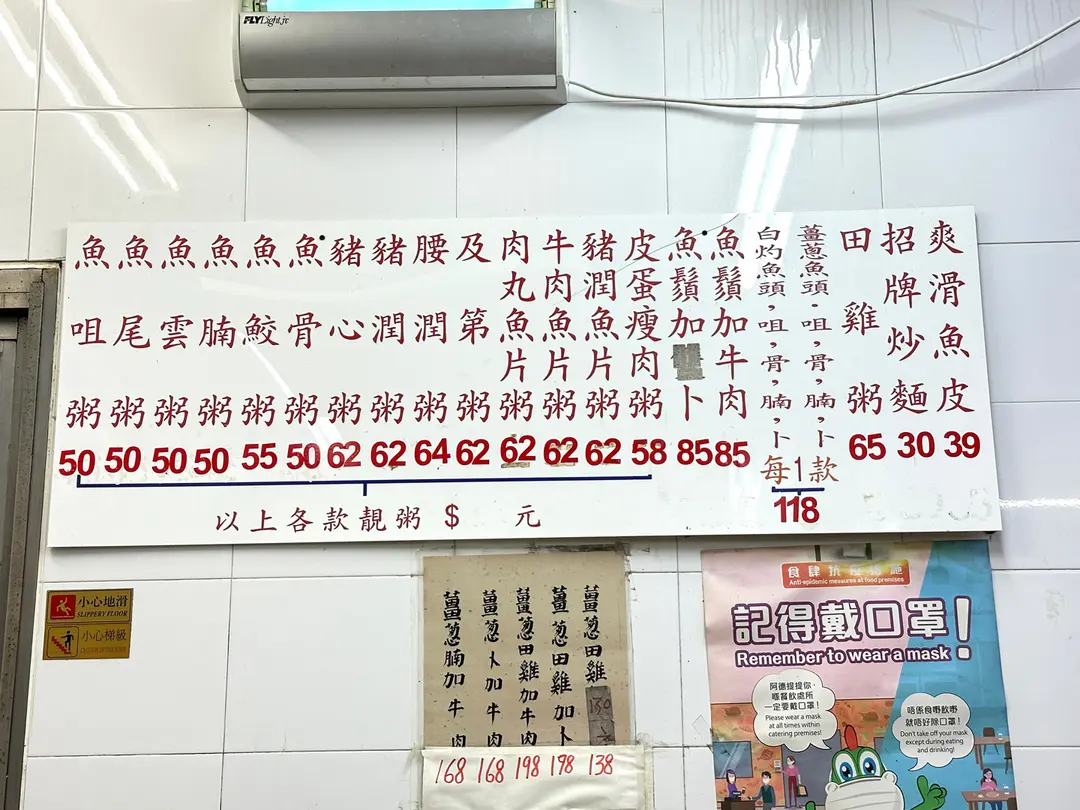 FLYLight jr
爽滑魚皮 39
招牌炒麵 30
田雞粥 65
薑蔥魚頭，咀，骨，腩，卜
白灼魚頭，咀，骨，腩，卜
每1款
118
魚鬚加牛肉 85
魚鬚加卜 85
皮蛋瘦肉粥 58
豬潤魚片粥 62
牛肉魚片粥 62
肉丸魚片粥 62
及第粥 62
腰潤粥 64
豬潤粥 62
豬心粥 62
魚骨粥 50
魚鮫粥 55
魚腩粥 50
魚雲粥 50
魚尾粥 50
魚咀粥 50
以上各款靚粥 $ 元
小心地滑
SLIPPERY FLOOR
小心梯級
薑葱田雞 138
薑葱田雞加卜 198
薑葱田雞加牛肉 198
薑葱卜加牛肉 168
薑葱腩加牛肉 168
食肆抗疫措施
Anti-epidemic measures at food premises
記得戴口罩!
Remember to wear a mask!
阿德提提你，
喺餐飲處所
一定要戴口罩!
Please wear a mask
at all times within
catering premises!
唔係食嘢飲嘢
就唔好除口罩!
Don't take off your mask
except during eating
and drinking!